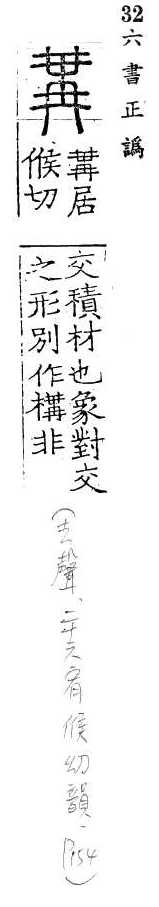 32 六書正譌
冓
冓居
候切
交積材也象對交
之形別作構非
(去聲、二十六宥候幼韻、P.154)